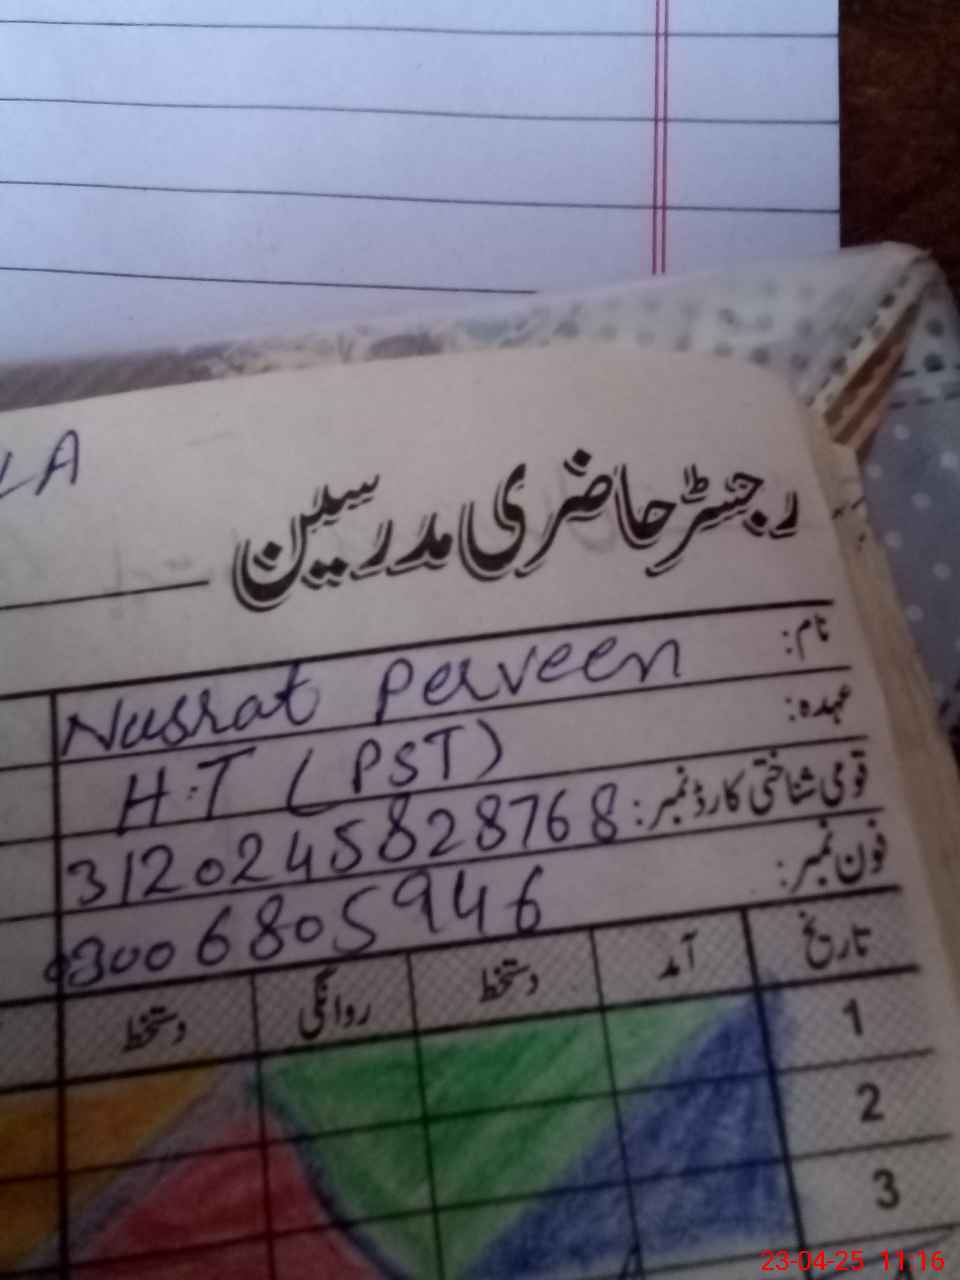 LA
رجسٹر حاضری مدرسین
نام: Nusrat Perveen
عہدہ: H.T (PST)
قومی شناختی کارڈ نمبر: 3120245828768
فون نمبر: 03006805946
تاریخ آمد دستخط روانگی دستخط
1
2
3
23-04-25 11:16